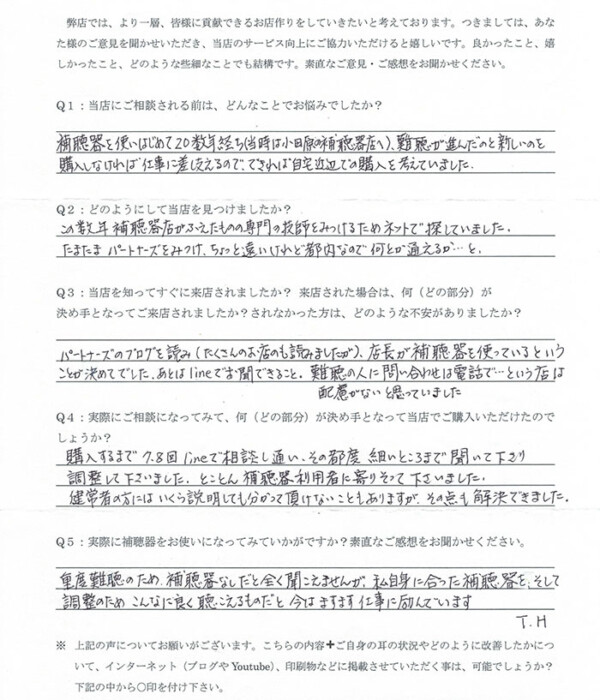 弊店では、より一層、皆様に貢献できるお店作りをしていきたいと考えております。つきましては、あな
た様のご意見を聞かせいただき、当店のサービス向上にご協力いただけると嬉しいです。良かったこと、嬉
しかったこと、どのような些細なことでも結構です。素直なご意見・ご感想をお聞かせください。
Q1：当店にご相談される前は、どんなことでお悩みでしたか？
補聴器を使いはじめて20数年経ち(当時は小田原の補聴器店へ)、難聴が進んだのと新しいのを
購入しなければ仕事に差し支えるので、できれば自宅近辺での購入を考えていました。
Q2：どのようにして当店を見つけましたか？
この数年補聴器店がふえたものの専門の技師をみつけるためネットで探していました。
たまたまパートナーズをみつけ、ちょっと遠いけれど都内なので何とか通えるか…と。
Q3：当店を知ってすぐに来店されましたか？ 来店された場合は、何（どの部分）が
決め手となってご来店されましたか？されなかった方は、どのような不安がありましたか？
パートナーズのブログを読み(たくさんのお店のも読みましたが)、店長が補聴器を使っているという
ことが決めてでした。あとはlineでお聞できること。難聴の人に問い合わせは電話で…という店は
配慮がないと思っていました
Q4：実際にご相談になってみて、何（どの部分）が決め手となって当店でご購入いただけたので
しょうか？
購入するまで7.8回lineで相談し通い、その都度細いところまで聞いて下さり
調整して下さいました。とことん補聴器利用者に寄りそって下さいました。
健常者の方にはいくら説明しても分かって頂けないこともありますが、その点も解決できました。
Q5：実際に補聴器をお使いになってみていかがですか？素直なご感想をお聞かせください。
重度難聴のため、補聴器なしだと全く聞こえませんが、私自身に合った補聴器を、そして
調整のためこんなに良く聴こえるものだと今はますます仕事に励んでいます
T.H
※ 上記の声についてお願いがございます。こちらの内容＋ご自身の耳の状況やどのように改善したかにつ
いて、インターネット（ブログや Youtube）、印刷物などに掲載させていただく事は、可能でしょうか？
下記の中から〇印を付け下さい。